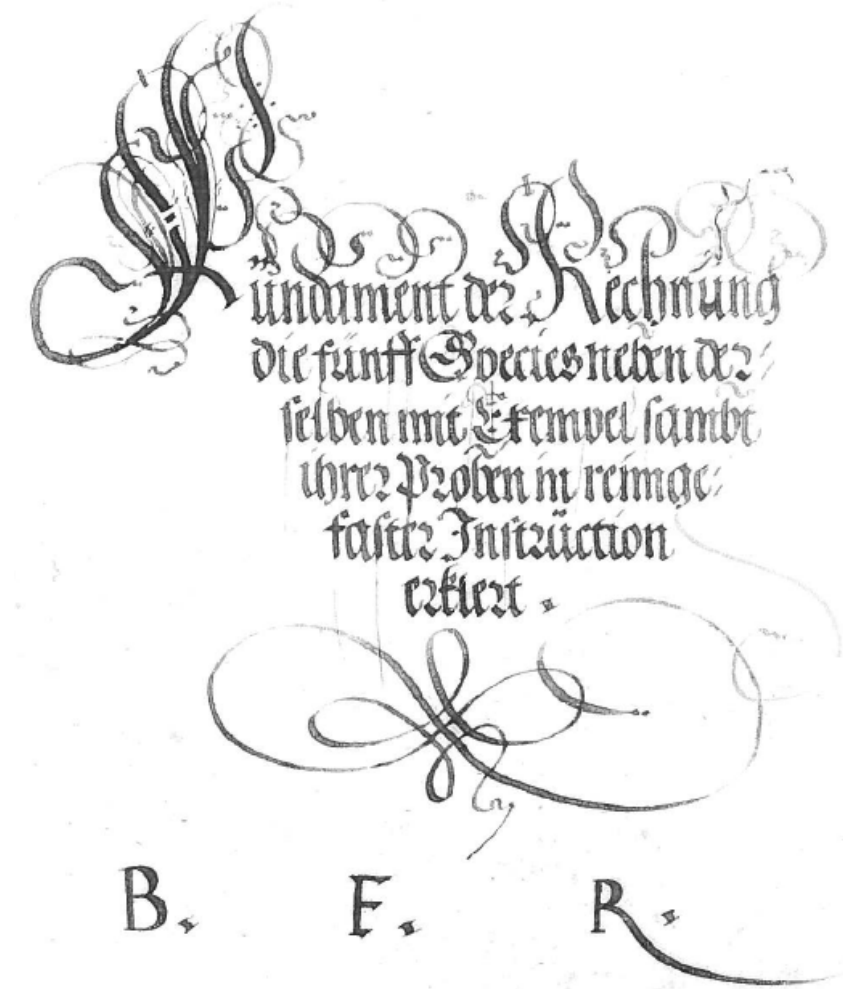 Fundament der Rechnung
die fünff Species neben der=
selben mit Exempel sambt
ihrer Proben in reimge=
faster Instrüction
erklert.
B. F. R.